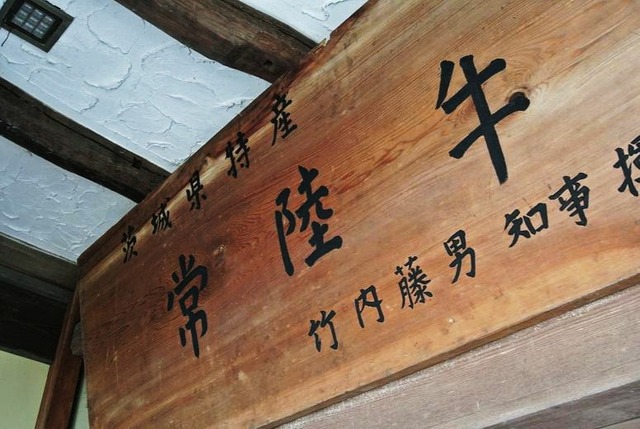 茨城県特産
常陸牛
竹内藤男知事